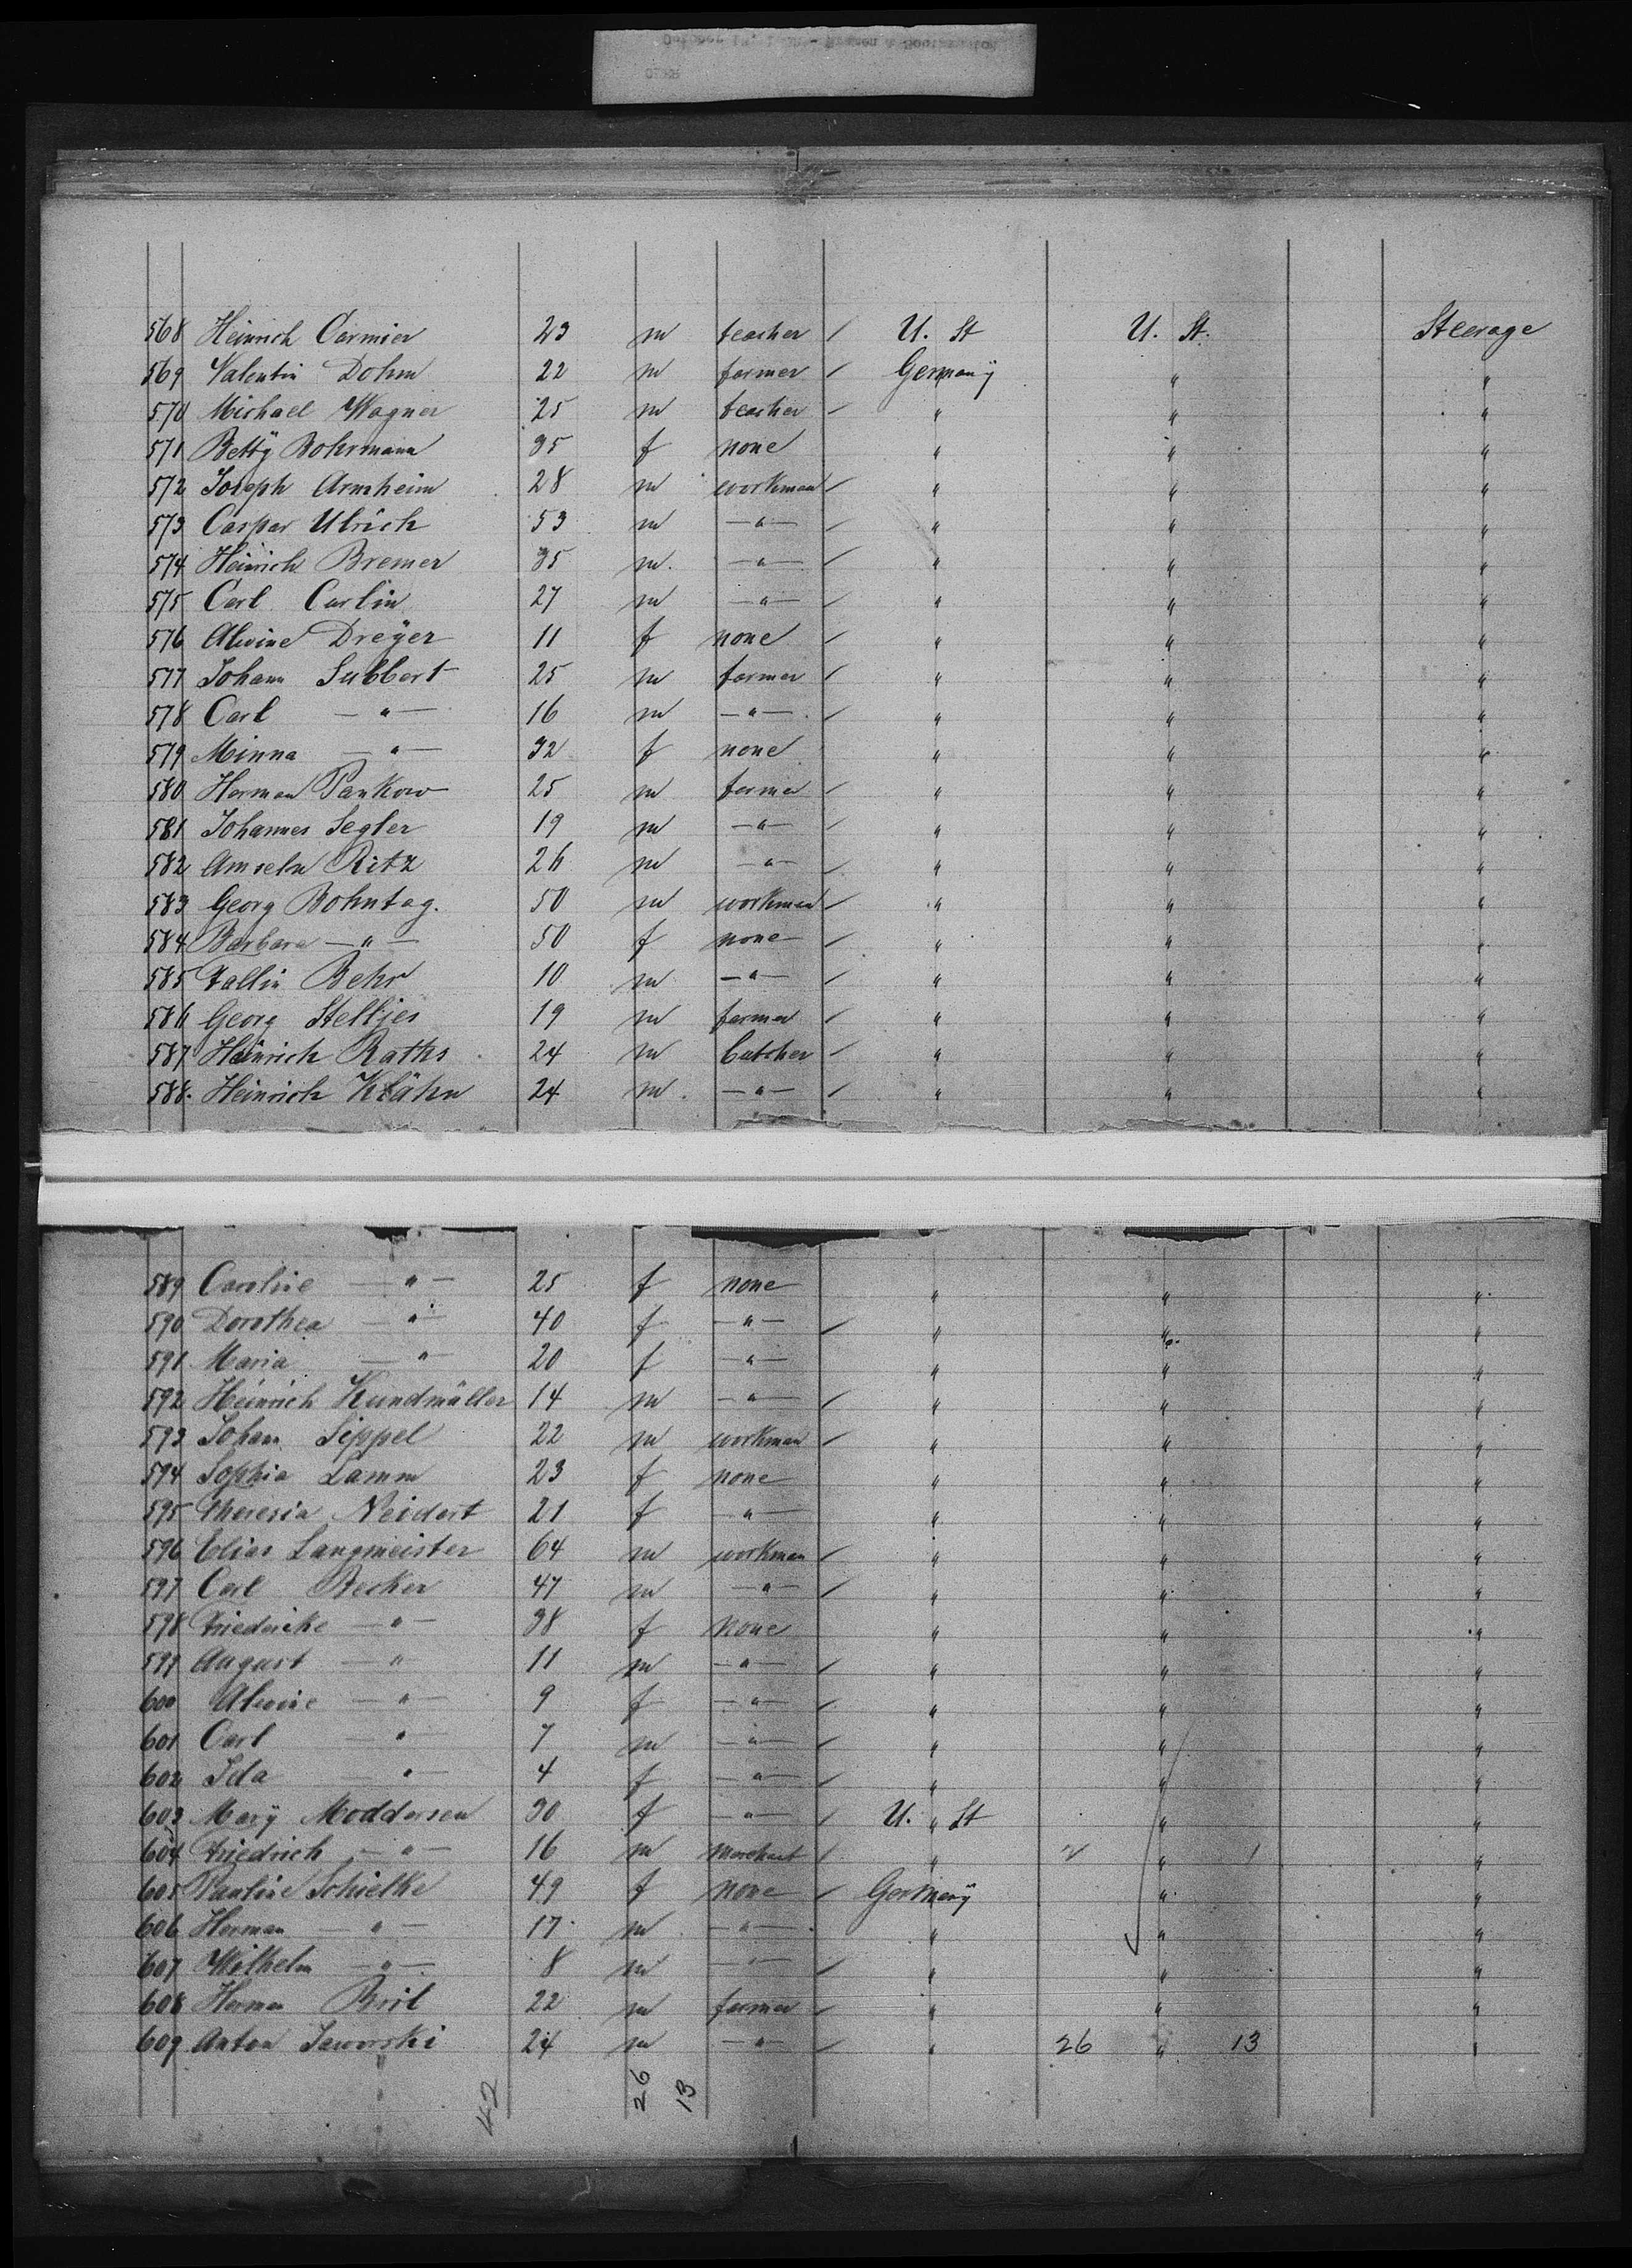 568 Heinrich Cormier 23 m teacher / U. St U. St. Steerage
569 Valentin Dohm 22 m farmer / Germany " "
570 Michael Wagner 25 m teacher / " " "
571 Betty Bohrmann 35 f none " " "
572 Joseph Arnheim 28 m workman / " " "
573 Caspar Ulrich 53 m —"— / " " "
574 Heinrich Bremer 35 m. —"— / " " "
575 Carl Carlin 27 m —"— / " " "
576 Alwine Dreyer 11 f none / " " "
577 Johann Subbert 25 m farmer / " " "
578 Carl —"— 16 m —"— / " " "
579 Minna —"— 32 f none " " "
580 Herman Pankow 25 m farmer / " " "
581 Johannes Segler 19 m —"— / " " "
582 Amseln Ritz 26 m —"— / " " "
583 Georg Bohntag. 50 m workman / " " "
584 Barbara —"— 50 f none / " " "
585 Fallin Behr 10 m —"— / " " "
586 Georg Stelljes 19 m farmer / " " "
587 Heinrich Raths 24 m butcher / " " "
588. Heinrich Klähn 24 m. —"— / " " "
589 Caroline —"— 25 f none " " "
590 Dorothea —"— 40 f —"— / " " "
591 Maria —"— 20 f —"— " " "
592 Heinrich Kundmüller 14 m —"— / " " "
593 Johann Sippel 22 m workman / " " "
594 Sophia Lamm 23 f none " " "
595 Theresia Neidert 21 f —"— " " "
596 Elias Langmeister 64 m workman / " " "
597 Carl Becker 47 m —"— / " " "
598 Friedericke —"— 38 f none " " "
599 August —"— 11 m —"— / " " "
600 Alwine —"— 9 f —"— / " " "
601 Carl —"— 7 m —"— / " " "
602 Ida —"— 4 f —"— / " " "
603 Mary Moddersen 30 f —"— / U. St " "
604 Friedrich —"— 16 m merchant / " 2 " 1 "
605 Pauline Schielke 49 f none / Germany " "
606 Herman —"— 17 m —"— " " "
607 Wilhelm —"— 8 m —"— / " " "
608 Herman Bril 22 m farmer / " " "
609 Anton Jaworski 24 m —"— / " 26 " 13 "
42 26 13